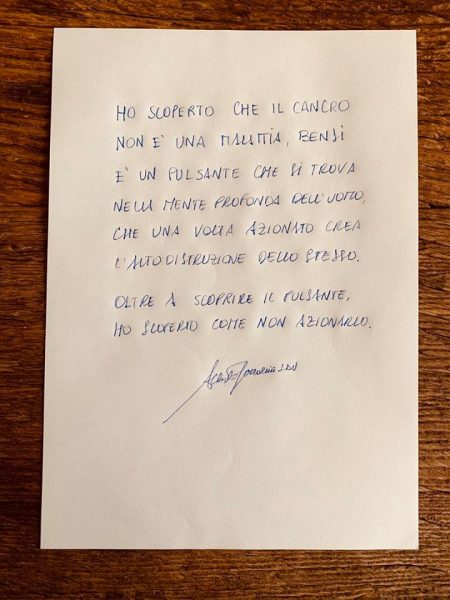 HO SCOPERTO CHE IL CANCRO
NON E' UNA MALATTIA, BENSÌ
E' UN PULSANTE CHE SI TROVA
NELLA MENTE PROFONDA DELL'UOMO,
CHE UNA VOLTA AZIONATO CREA
L'AUTODISTRUZIONE DELLO STESSO.
OLTRE A SCOPRIRE IL PULSANTE,
HO SCOPERTO COME NON AZIONARLO.